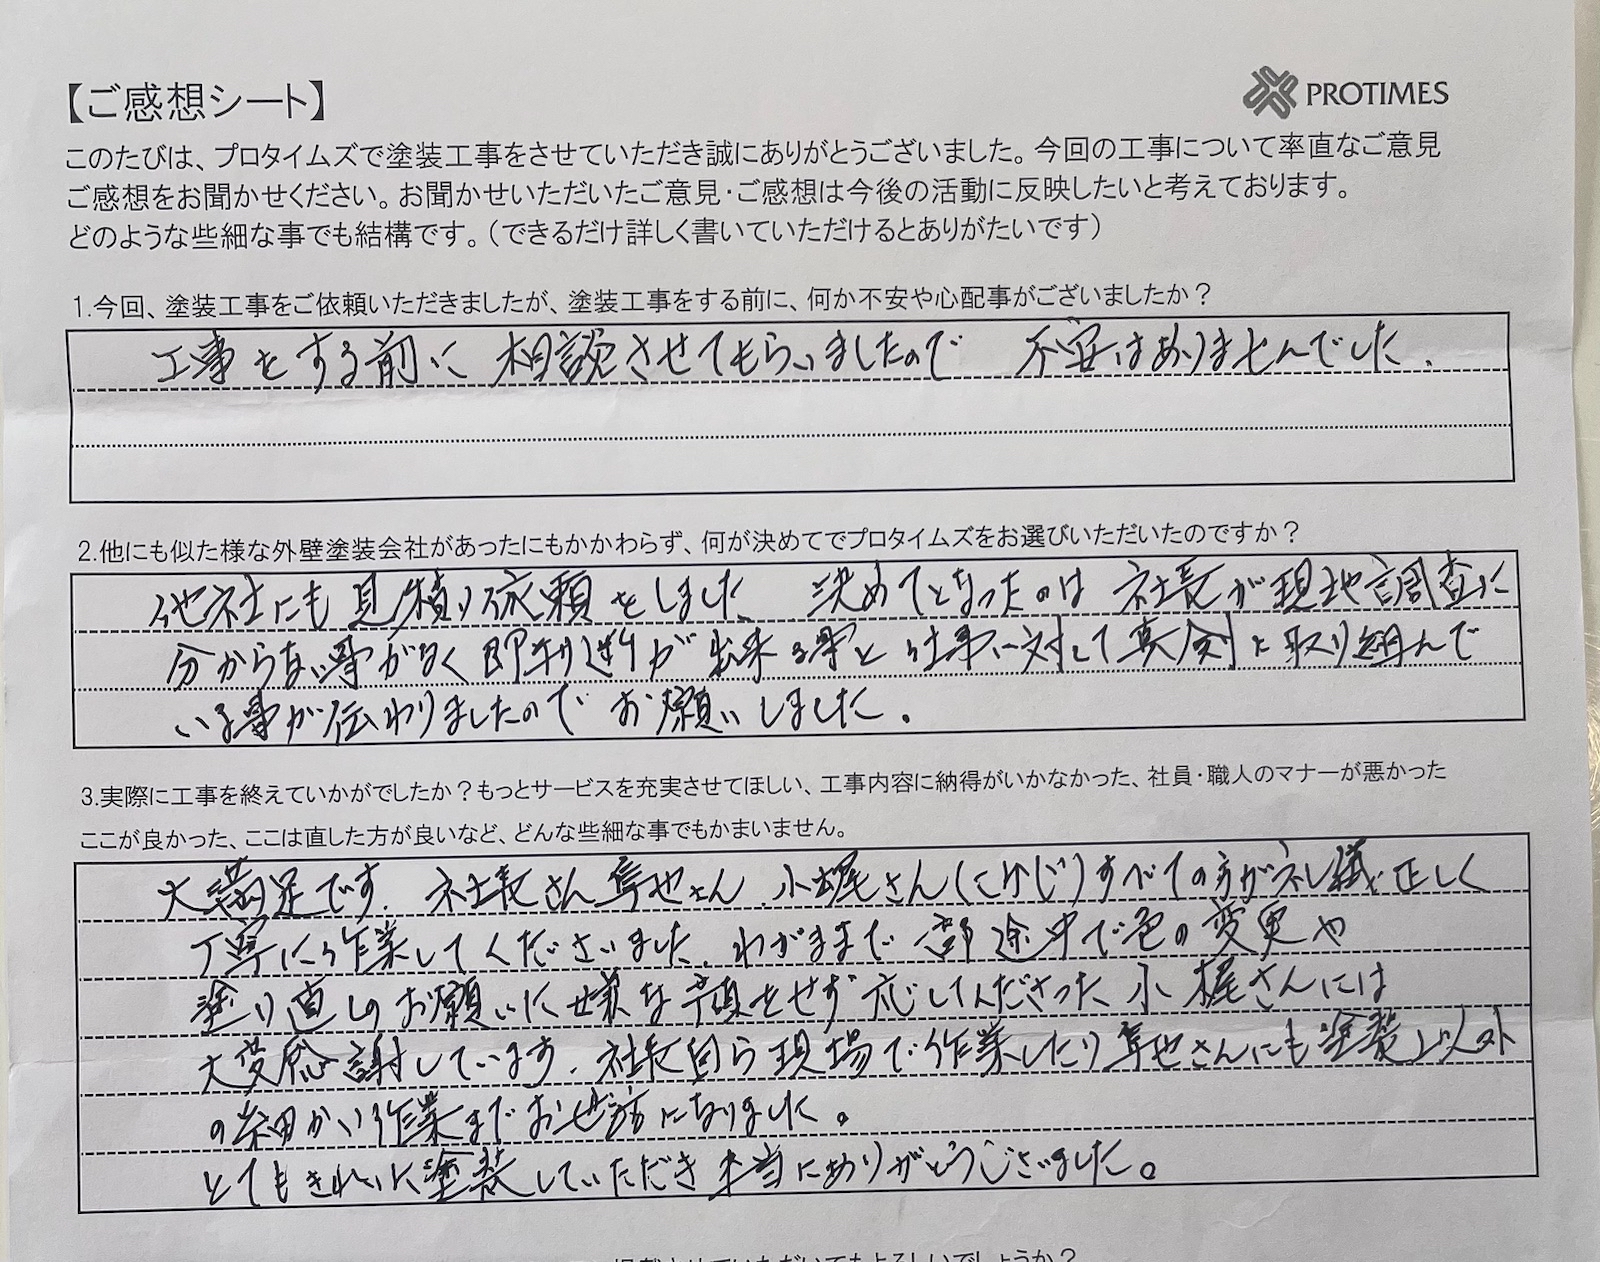 【ご感想シート】
PROTIMES
このたびは、プロタイムズで塗装工事をさせていただき誠にありがとうございました。今回の工事について率直なご意見
ご感想をお聞かせください。お聞かせいただいたご意見・ご感想は今後の活動に反映したいと考えております。
どのような些細な事でも結構です。（できるだけ詳しく書いていただけるとありがたいです）
1.今回、塗装工事をご依頼いただきましたが、塗装工事をする前に、何か不安や心配事がございましたか？
工事をする前に 相談させてもらいましたので 不安はありませんでした.
2.他にも似た様な外壁塗装会社があったにもかかわらず、何が決めてでプロタイムズをお選びいただいたのですか？
他社にも見積り依頼をしました. 決めてとなったのは 社長が現地調査に
分からない事がなく即判断が出来る事と仕事に対して真剣に取り組んで
いる事が伝わりましたので お願いしました。
3.実際に工事を終えていかがでしたか？もっとサービスを充実させてほしい、工事内容に納得がいかなかった、社員・職人のマナーが悪かった
ここが良かった、ここは直した方が良いなど、どんな些細な事でもかまいません。
大満足です. 社長さん 隼也さん. 小梶さん(こかじ)すべての方が礼儀正しく
丁寧に作業してくださいました. わがままで 途中で色の変更や
塗り直しのお願いに嫌な顔をせず応じてくださった 小梶さんには
大変感謝しています. 社長自ら現場で作業したり 隼也さんにも塗装以外
の細かい作業までお世話になりました。
とてもきれいに塗装していただき 本当にありがとうございました。